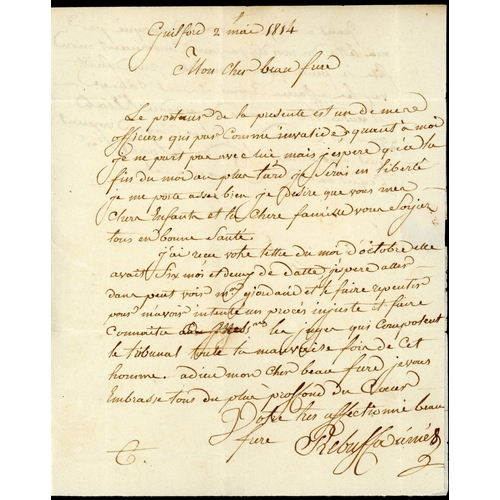 Guilford 2 mai 1814
Mon Cher beau frere
Le porteur de la presente est un de mes
officiers qui par Comme invalide, quant à moi
je ne part pas avec lui mais j'espere qu'a la
fin du moi au plus tard je Serai en liberté
je me porte assez bien je Desire que vous mes
Chere Enfants et la Chere famille vous Soyez
tous en bonne Santé.
j'ai recu votre lettre du moi d'octobre elle
avait Six mois et demy de datte, j'espere aller
dans peut voir mr giordand et le faire repentir
pour m'avoir intenté un procès injuste et faire
Connoitre a les juger qui Composent
le tribunal toute la mauvaise foix de Cet
homme. adieu mon Cher beau frere je vous
Embrasse tous du plus proffond du Coeur
Votre tres affectionné beau
frere Rebuffa